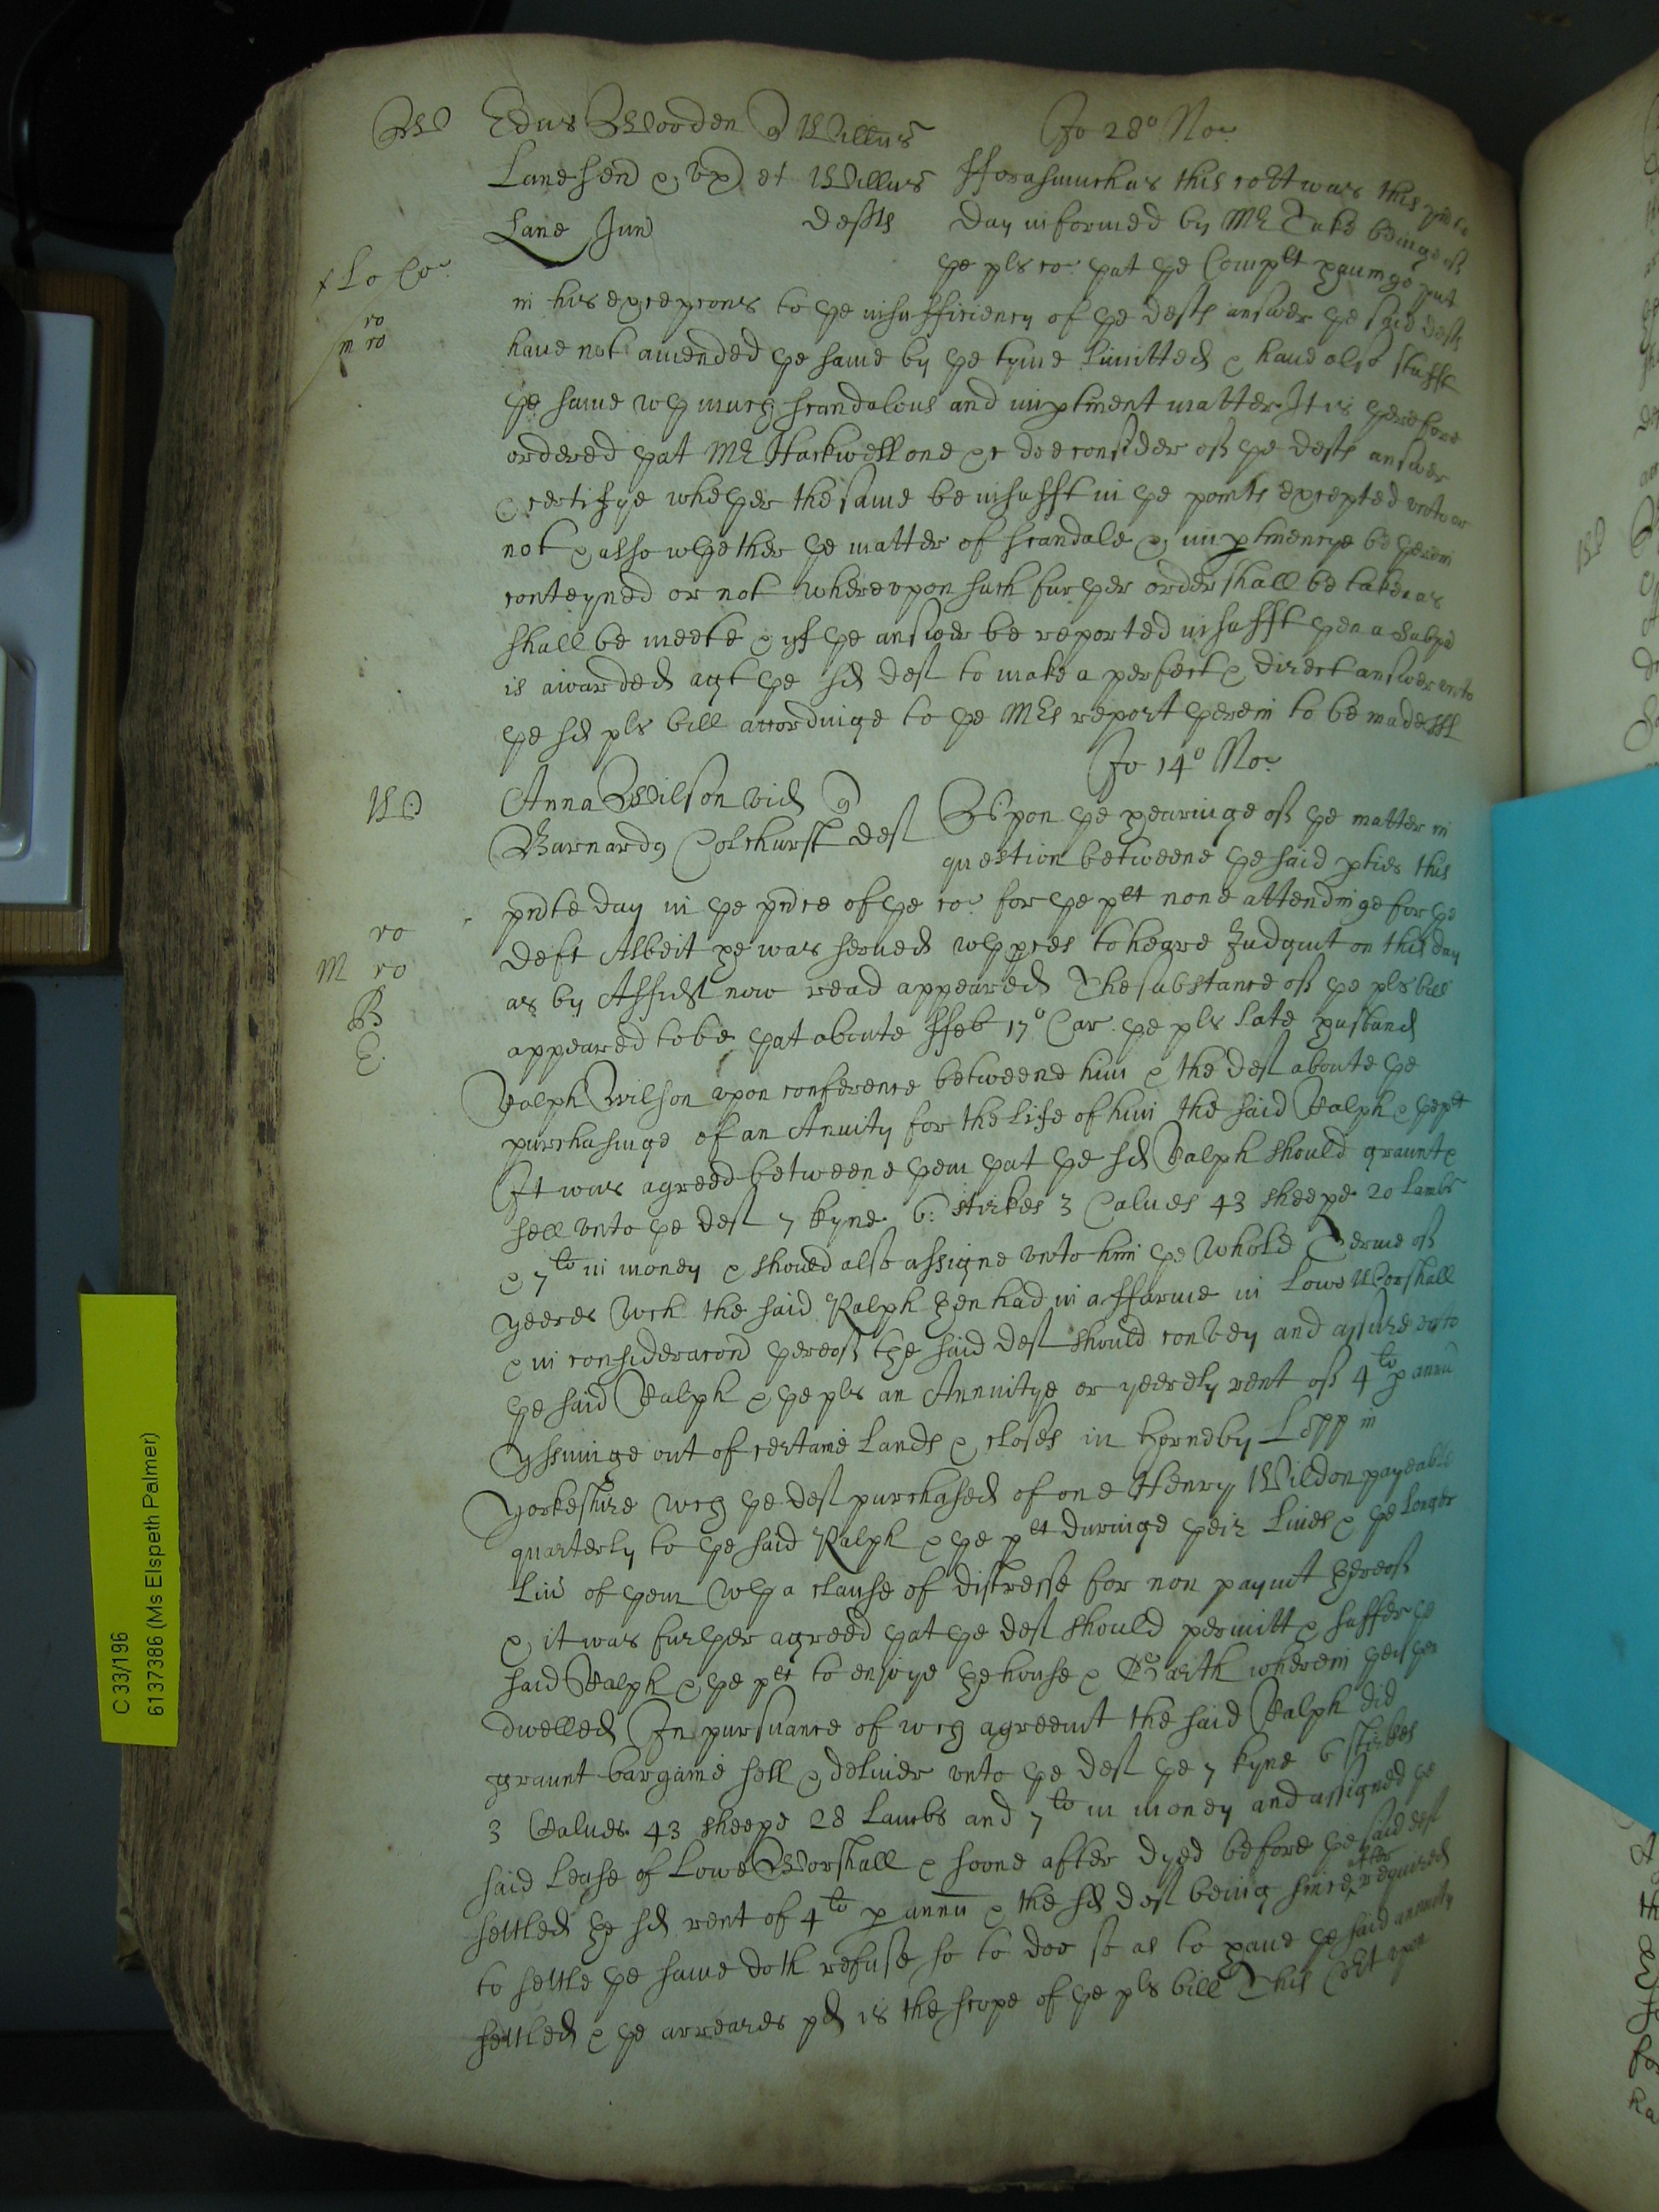 W Edus Wooden q Willus Jo 28° No:
Lane sen & vx et Willus fforasmuch as this cort was this pnte
Lane Jun defts day informed by Mr Tuke beinge of
ye pls co: yat ye Complt haueinge put
f Lo Co:
in his excepcons to ye insufficiency of ye defts answer ye said defts
ro
m ro
haue not amended ye same by ye tyme limitted & haue also stufft
ye same wth much scandalous and imptinent matter It is yerefore
ordered yat Mr Hackwell one &c doe consider of ye defts answer
& certifye wheyer the same be insufft in ye points excepted vnto or
not & also whether ye matter of scandale & imptinencye be yerein
conteyned or not wherevpon such furyer order shall be taken as
shall be meete & yf ye answer be reported insufft yen a Subpa
is awarded agt ye sd deft to make a perfect & direct answer vnto
ye sd pls bill accordinge to ye Mrs report yerein to be made
Jo 14° No:
W Anna Wilson vid q
Barnardq Colchurst deft Vpon ye hearinge of ye matter in
question betweene ye said pties this
pnte day in ye pnce of ye co: for ye plt none attendinge for ye
ro
deft Albeit he was serued wth pces to heare Judgmt on this day
M ro
as by Affidt now read appeared The substance of ye pls bill
B
appeared to be yat aboute ffeb 17° Car. ye pls late husband
E.
Ralph Wilson vpon conference betweene him & the deft aboute ye
purchasinge of an Anuity for the life of him the said Ralph & ye plt
It was agreed betweene yem yat ye sd Ralph should graunt &
sell vnto ye deft 7 kyne 6: stirkes 3 Calues 43 sheepe 20 lambs
& 7li in money & should also assigne vnto him ye whole Terme of
yeeres wch the said Ralph yen had in a ffarme in Lowe Worshall
& in consideracon yereof the said deft should convey and assure vnto
ye said Ralph & ye pls an Annuitye or yeerely rent of 4li p annu
yssuinge out of certaine Lands & closes in Horneby in
Yorkeshire wch ye deft purchased of one Henry Wildon payeable
quarterly to ye said Ralph & ye plt duringe yeir Liues & ye longer
Liu of yem wth a clause of distresse for non paymt yereof
& it was furyer agreed yat ye deft should permitt & suffer ye
said Ralph & ye plt to enioye ye house & Garth wherein yey yen
dwelled In pursuance of wch agreemt the said Ralph did
graunt bargaine sell & deliuer vnto ye deft ye 7 kyne 6 stirkes
3 Calues 43 sheepe 28 lambs and 7li in money and assigned ye
said lease of Lowe Worshall & soone after dyed before ye said deft
settled ye sd rent of 4li p annu & the sd deft being since often required
to settle ye same doth refuse so to doe so as to haue ye said annuity
settled & ye arreares pd is the scope of ye pls bill This Cort vpon
C 33/196
6137386 (Ms Elspeth Palmer)